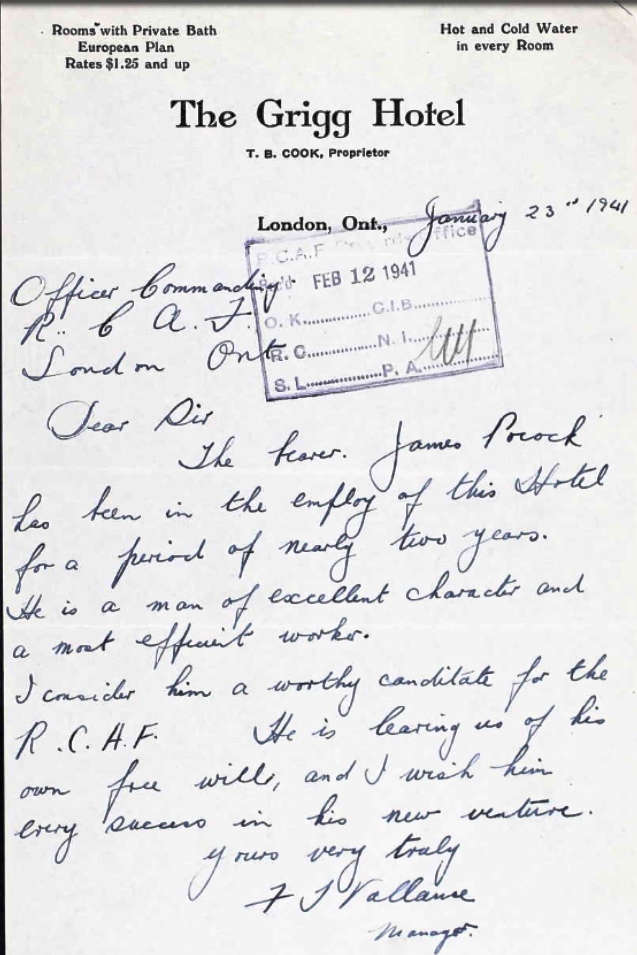 Rooms with Private Bath
European Plan
Rates $1.25 and up
Hot and Cold Water
in every Room
The Grigg Hotel
T. B. COOK, Proprietor
London, Ont., January 23rd 1941
R.C.A.F. Records Office
Rec'd FEB 12 1941
O. K. .......... C.I.B. ..........
R. C. .......... N. I. ..........
S. L. .......... P. A. ..........
Officer Commanding
R. C. A. F.
London Ont
Dear Sir
The bearer. James Pocock
has been in the employ of this Hotel
for a period of nearly two years.
He is a man of excellent character and
a most efficient worker.
I consider him a worthy canditate for the
R.C.A.F. He is leaving us of his
own free will, and I wish him
every success in his new venture.
yours very truly
F J Vallance
Manager.